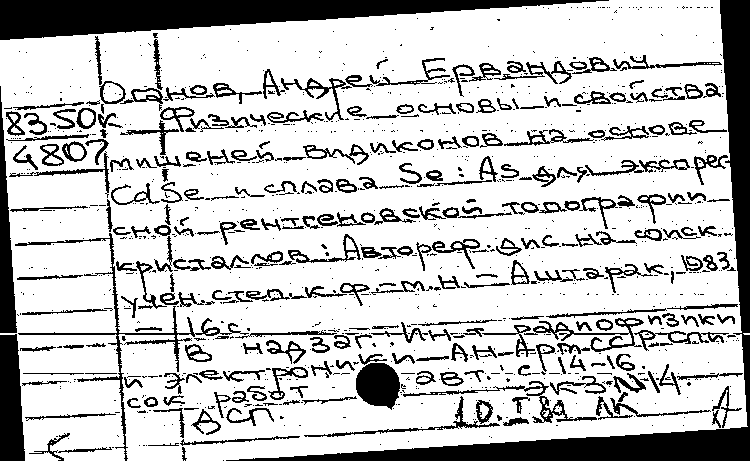 Оганов, Андрей Ервандович
83.50к Физические основы и свойства
4807 мишеней видиконов на основе
CdSe и сплава Se:As для экспрес-
сной рентгеновской топографии
кристаллов: Автореф. дис. на соиск.
учен. степ. к.ф.-м.н. - Аштарак, 1983
. - 16с.
В надзаг.: Ин-т радиофизики
и электроники АН АрмССР. Спи-
сок работ авт.: с. 14-16.
ДСП. экз. N 14.
10. I 84 ЛК А